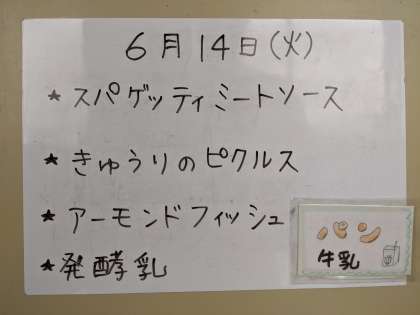 6月14日(火)
★ スパゲッティミートソース
★ きゅうりのピクルス
★ アーモンドフィッシュ
★ 発酵乳
パン
牛乳